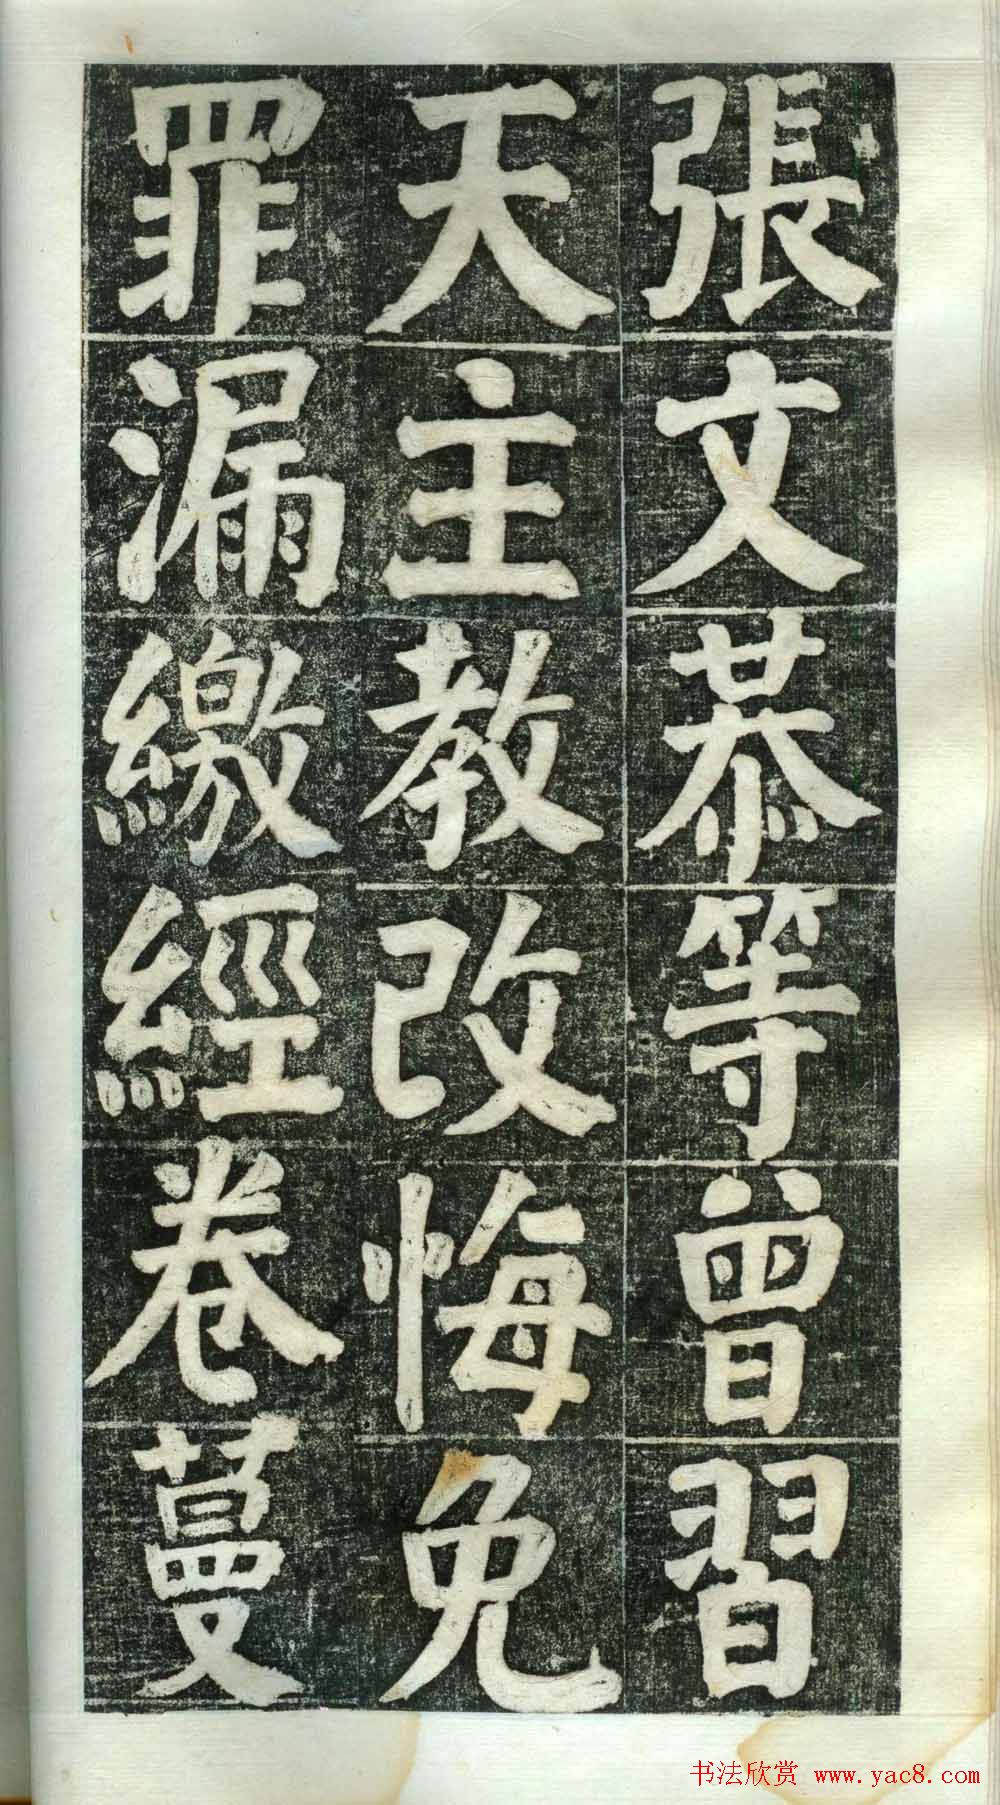 張文恭等曾習
天主教改悔免
罪漏繳經卷蔓
书法欣赏 www.yac8.com